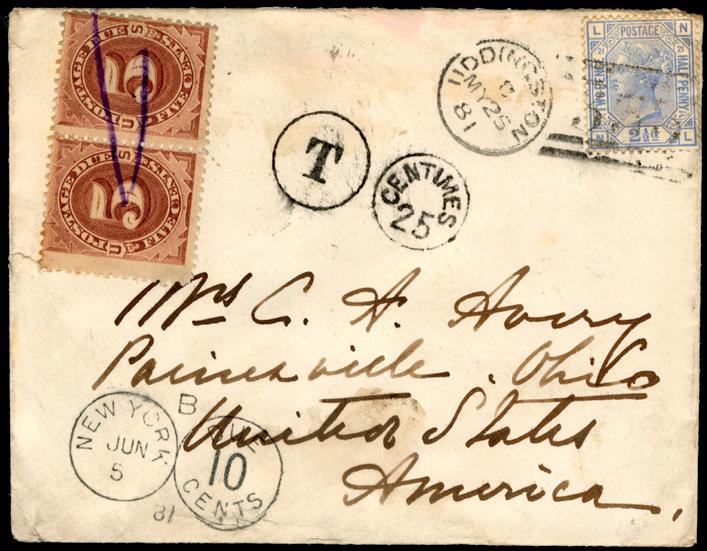 POSTAGE DUE
5
U S
FIVE CENTS
POSTAGE DUE
5
U S
FIVE CENTS
T
CENTIMES
25
UDDINGSTON
C
MY 25
81
L N
POSTAGE
HALFPENNY
2½d
L
Mrs C. A. Avery
Painesville. Ohio
United States
America.
NEW YORK
JUN
5
81
B
DUE
10
CENTS